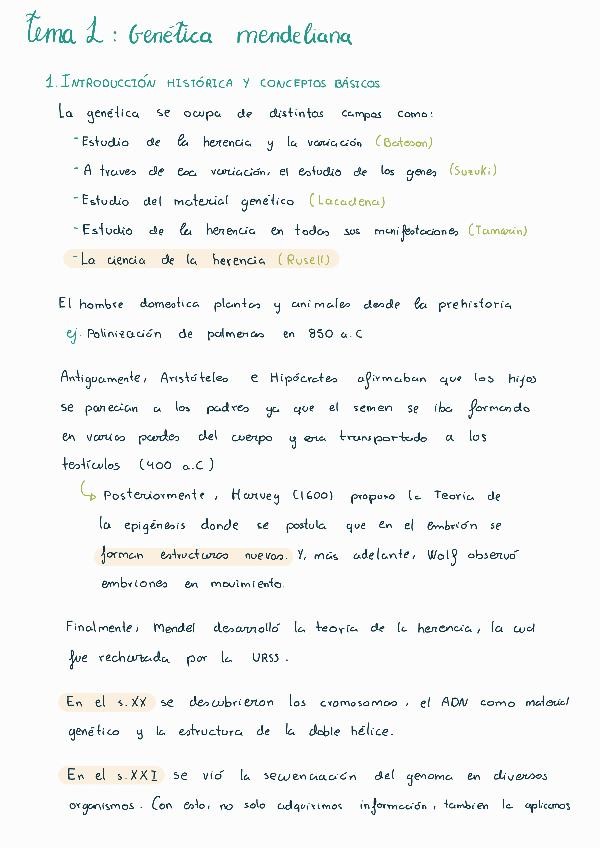 Tema 1: Genética mendeliana
1. INTRODUCCIÓN HISTÓRICA Y CONCEPTOS BÁSICOS
La genética se ocupa de distintos campos como:
- Estudio de la herencia y la variación (Bateson)
- A traves de esa variación, el estudio de los genes (Suzuki)
- Estudio del material genético (Lacadena)
- Estudio de la herencia en todas sus manifestaciones (Tamarin)
- La ciencia de la herencia (Rusell)
El hombre domestica plantas y animales desde la prehistoria
ej. Polinización de palmeras en 850 a.C
Antiguamente, Aristóteles e Hipócrates afirmaban que los hijos
se parecían a los padres ya que el semen se iba formando
en varias partes del cuerpo y era transportado a los
testículos (400 a.C)
↳ Posteriormente, Harvey (1600) propuso la Teoría de
la epigénesis donde se postula que en el embrión se
forman estructuras nuevas. Y, más adelante, Wolf observó
embriones en movimiento.
Finalmente, Mendel desarrolló la teoría de la herencia, la cual
fue rechazada por la URSS.
En el s.XX se descubrieron los cromosomas, el ADN como material
genético y la estructura de la doble hélice.
En el s.XXI se vió la secuenciación del genoma en diversos
organismos. Con esto, no solo adquirimos información, tambien la aplicamos